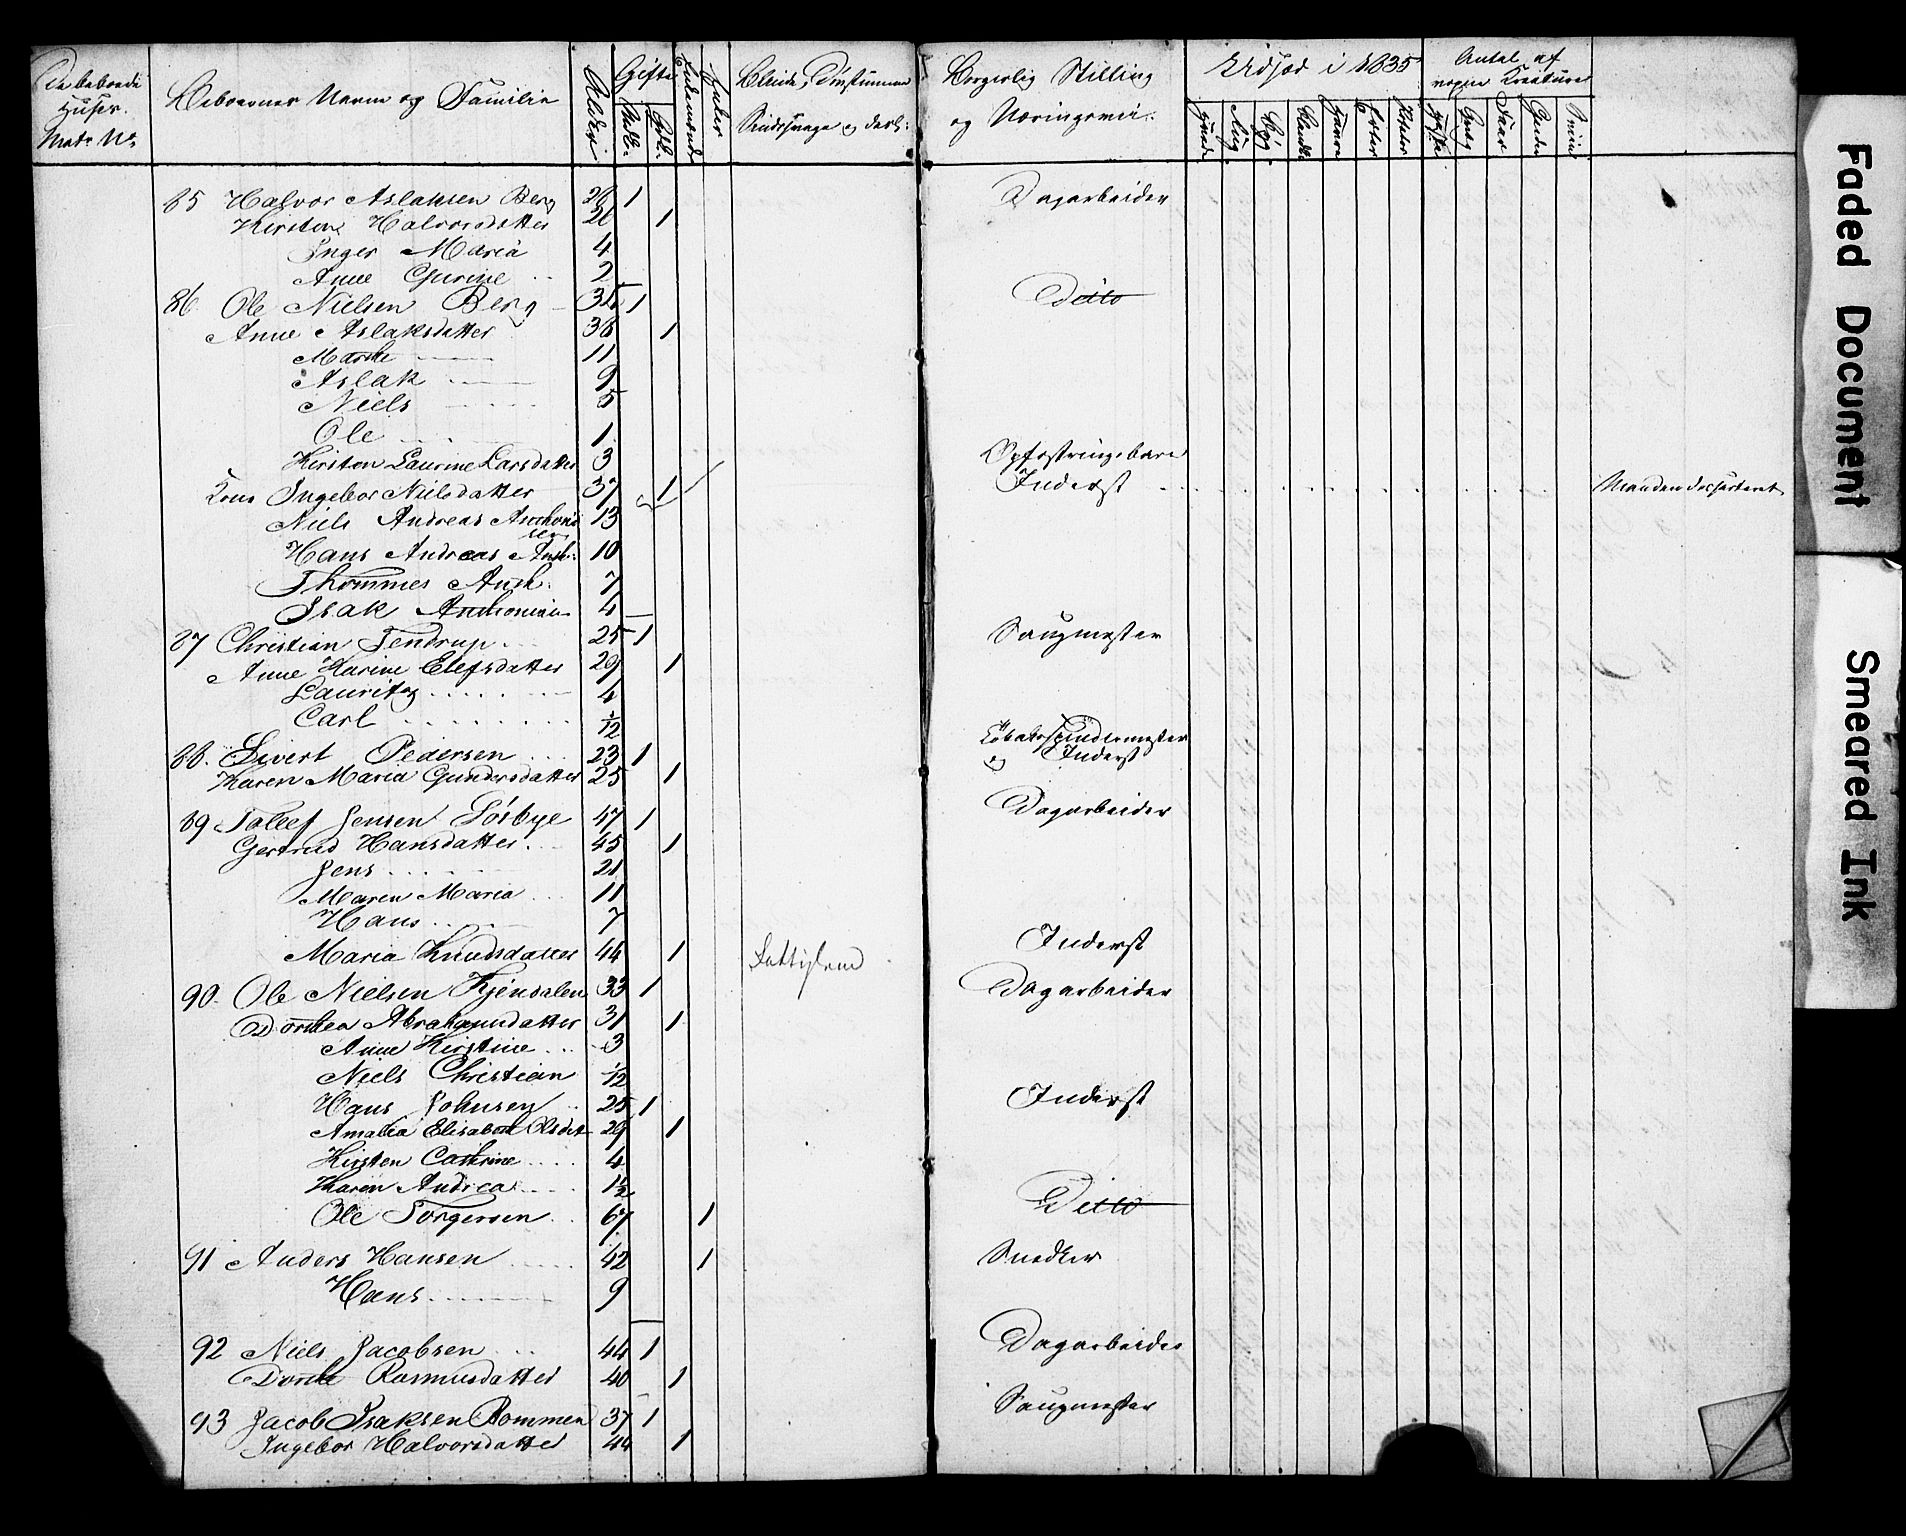 De beboede Huser. Matr. No.
Beboernes Navne og Familie
Alder
Gifte
Mdk: Qvdk:
Enker
Blinde, Døvstumme Sindssvage og døde:
Borgerlig Stilling og Næringsvei.
Udsæd i 1835
Antal af
Hvede Rug Byg Havre Erter
Heste Faar Sviin
85 Halvor Aslaksen Berg 1 Dagarbeider
Kirsten Halvorsdatter 1
Inger Maria 4
Anne Gurine 2
86. Ole Nielsen Berg 35 1 Ditto
Anne Aslaksdatter 38 1
Marthe 11
Aslak 9
Niels 5
Ole 1
Kirsten Laurine Larsdatter 3 Opfostringsbarn
Kone Ingebor Nielsdatter 37 1 Inderst Manden deserteret
Niels Andreas Anthoni 13
sen
Hans Andreas Anth: 10
Thommes Anth. 7
Isak Anthonius 4
87 Christian Tendrup 25 1 Saugmester
Anne Karine Elefsdatter 29 1
Lauritz 4
Carl 1/12
88. Sivert Pedersen 23 1 Tobakspindermester
og Inderst
Karen Maria Gundersdatter 25 1
89 Tollef Jensen Sörbye 47 1 Dagarbeider
Gertrud Hansdatter 45 1
Jens 21
Maren Maria 11
Hans 7
Maria Knudsdatter 44 1 Fattiglem Inderst
90. Ole Nielsen Kjendalen 33 1 Dagarbeider
Dorthea Abrahamsdatter 31 1
Anne Kirstine 3
Niels Christian 1/12
Hans Johnsen 25 1 Inderst
Amalia Elisabeth Olsdat 29 1
Kirsten Cathrine 4
Karen Andrea 1½
Ole Torgersen 67 1 Ditto
91 Anders Hansen 42 1 Snedker
Hans 9
92 Niels Jacobsen 44 1 Dagarbeider
Dorthe Rasmusdatter 40 1
93 Jacob Isaksen Bommen 37 1 Saugmester
Ingebor Halvorsdatter 44 1
Faded Document
Smeared Ink